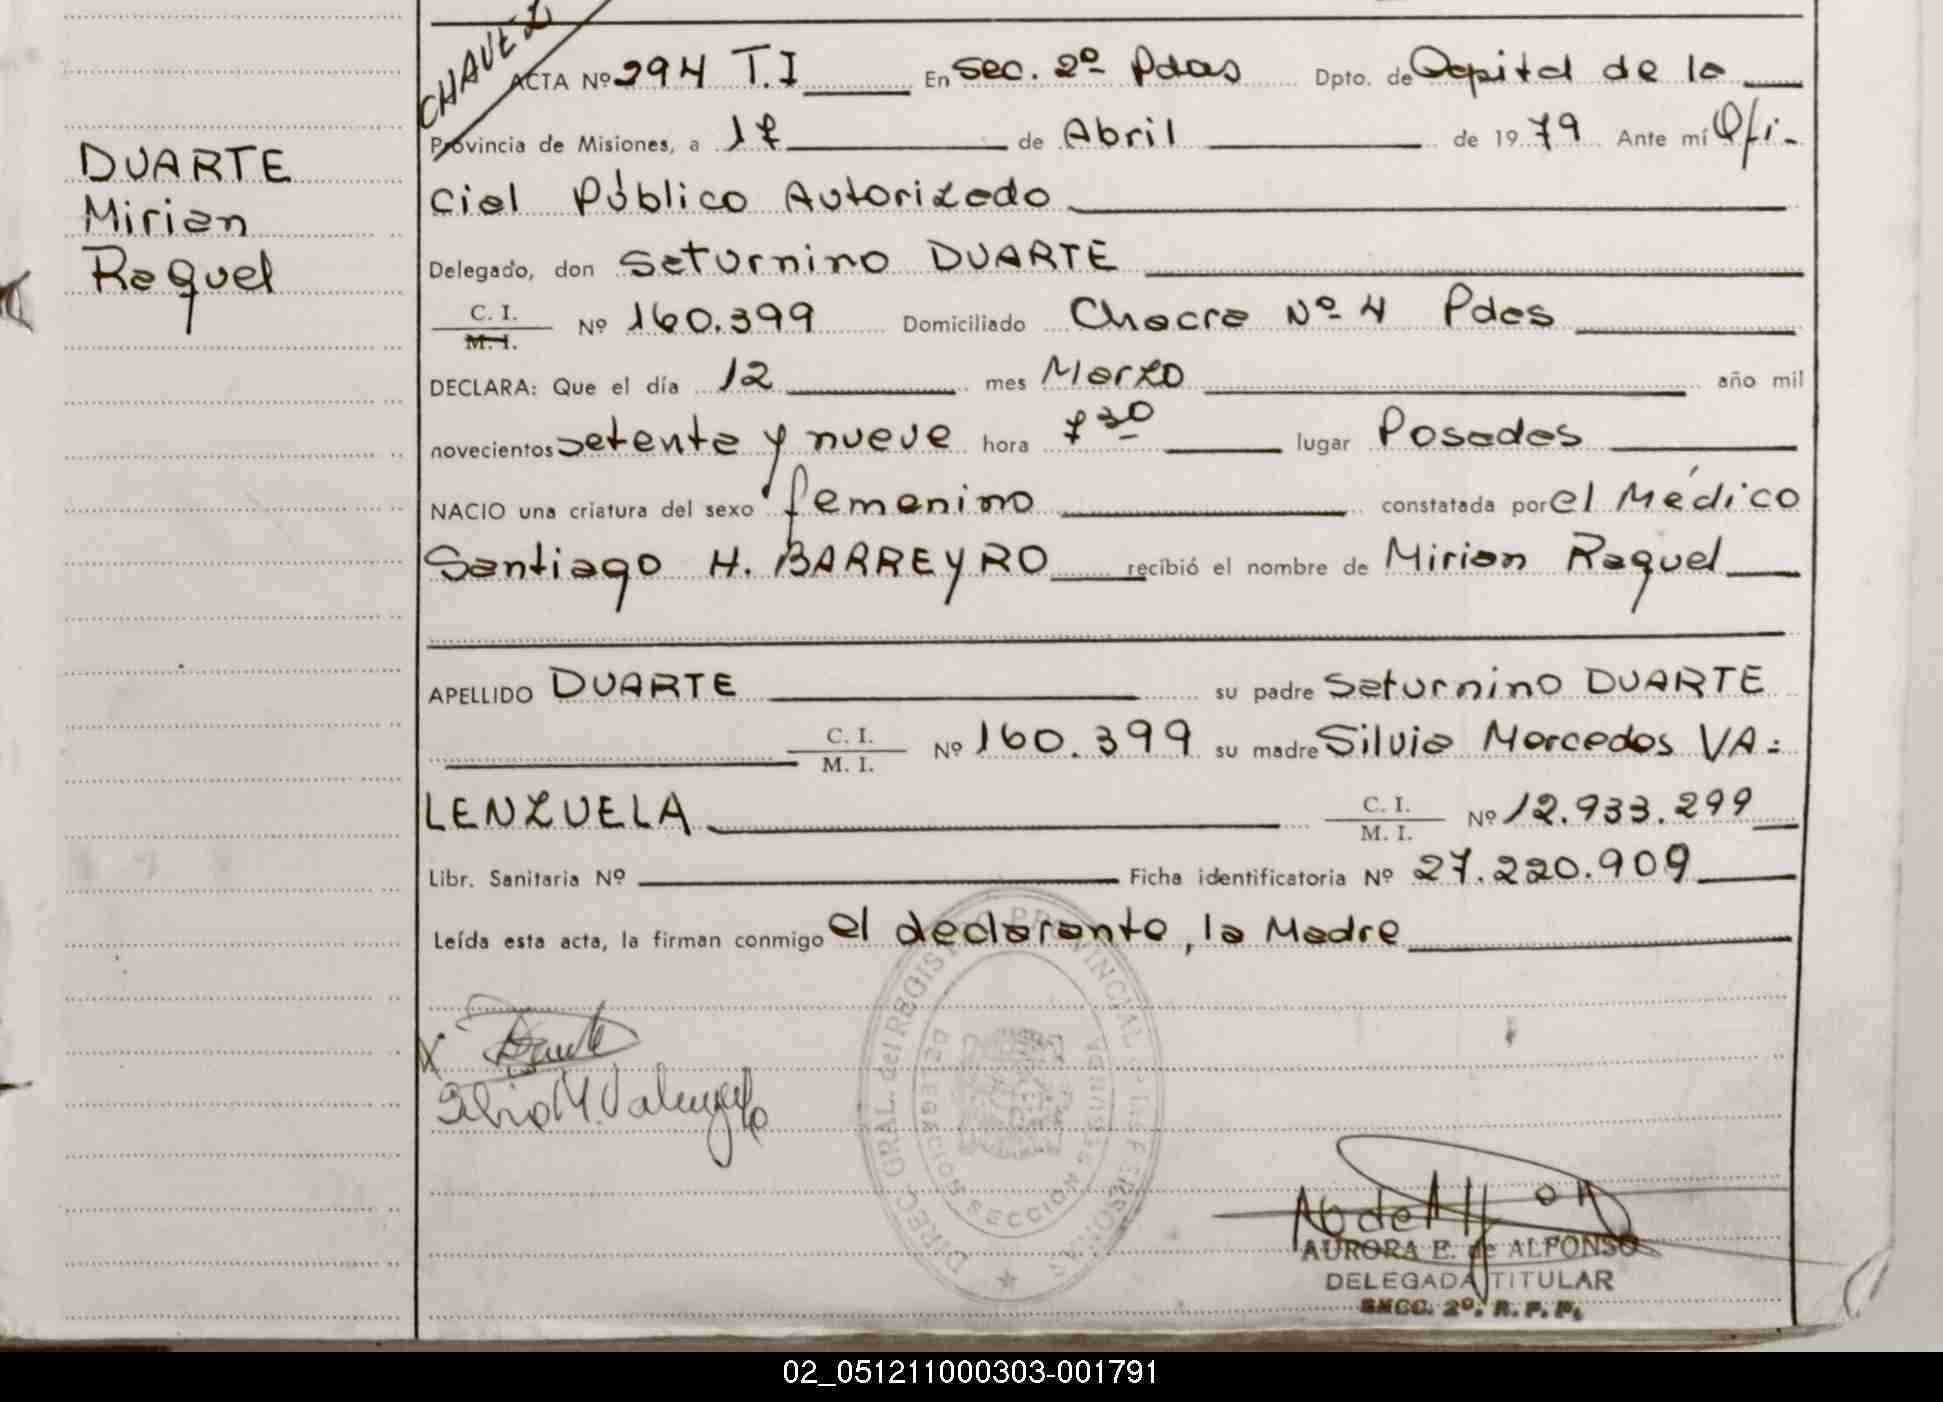 CHAVEZ
DUARTE
Mirian
Raquel
ACTA Nº 294 T.I En Sec. 2º Pdas Dpto. de Capital de la
Provincia de Misiones, a 17 de Abril de 1979 Ante mí Ofi-
cial Público Autorizado
Delegado, don Saturnino DUARTE
C. I. / M. I. Nº 160.399 Domiciliado Chacra Nº 4 Pdas
DECLARA: Que el día 12 mes Marzo año mil
novecientos setenta y nueve hora 7 30 lugar Posadas
NACIO una criatura del sexo femenino constatada por el Médico
Santiago H. BARREYRO recibió el nombre de Mirian Raquel
APELLIDO DUARTE su padre Saturnino DUARTE
C. I. / M. I. Nº 160.399 su madre Silvia Mercedes VA=
LENZUELA C. I. / M. I. Nº 12.933.299
Libr. Sanitaria Nº Ficha identificatoria Nº 27.220.909
Leída esta acta, la firman conmigo el declarante, la Madre
DIREC. GRAL. del REGISTRO PROVINCIAL de las PERSONAS
DELEGACION SECCION SEGUNDA
Silvia M. Valenzuela
AURORA E. de ALFONSO
DELEGADA TITULAR
SECC. 2º. R. P. P.
02_051211000303-001791